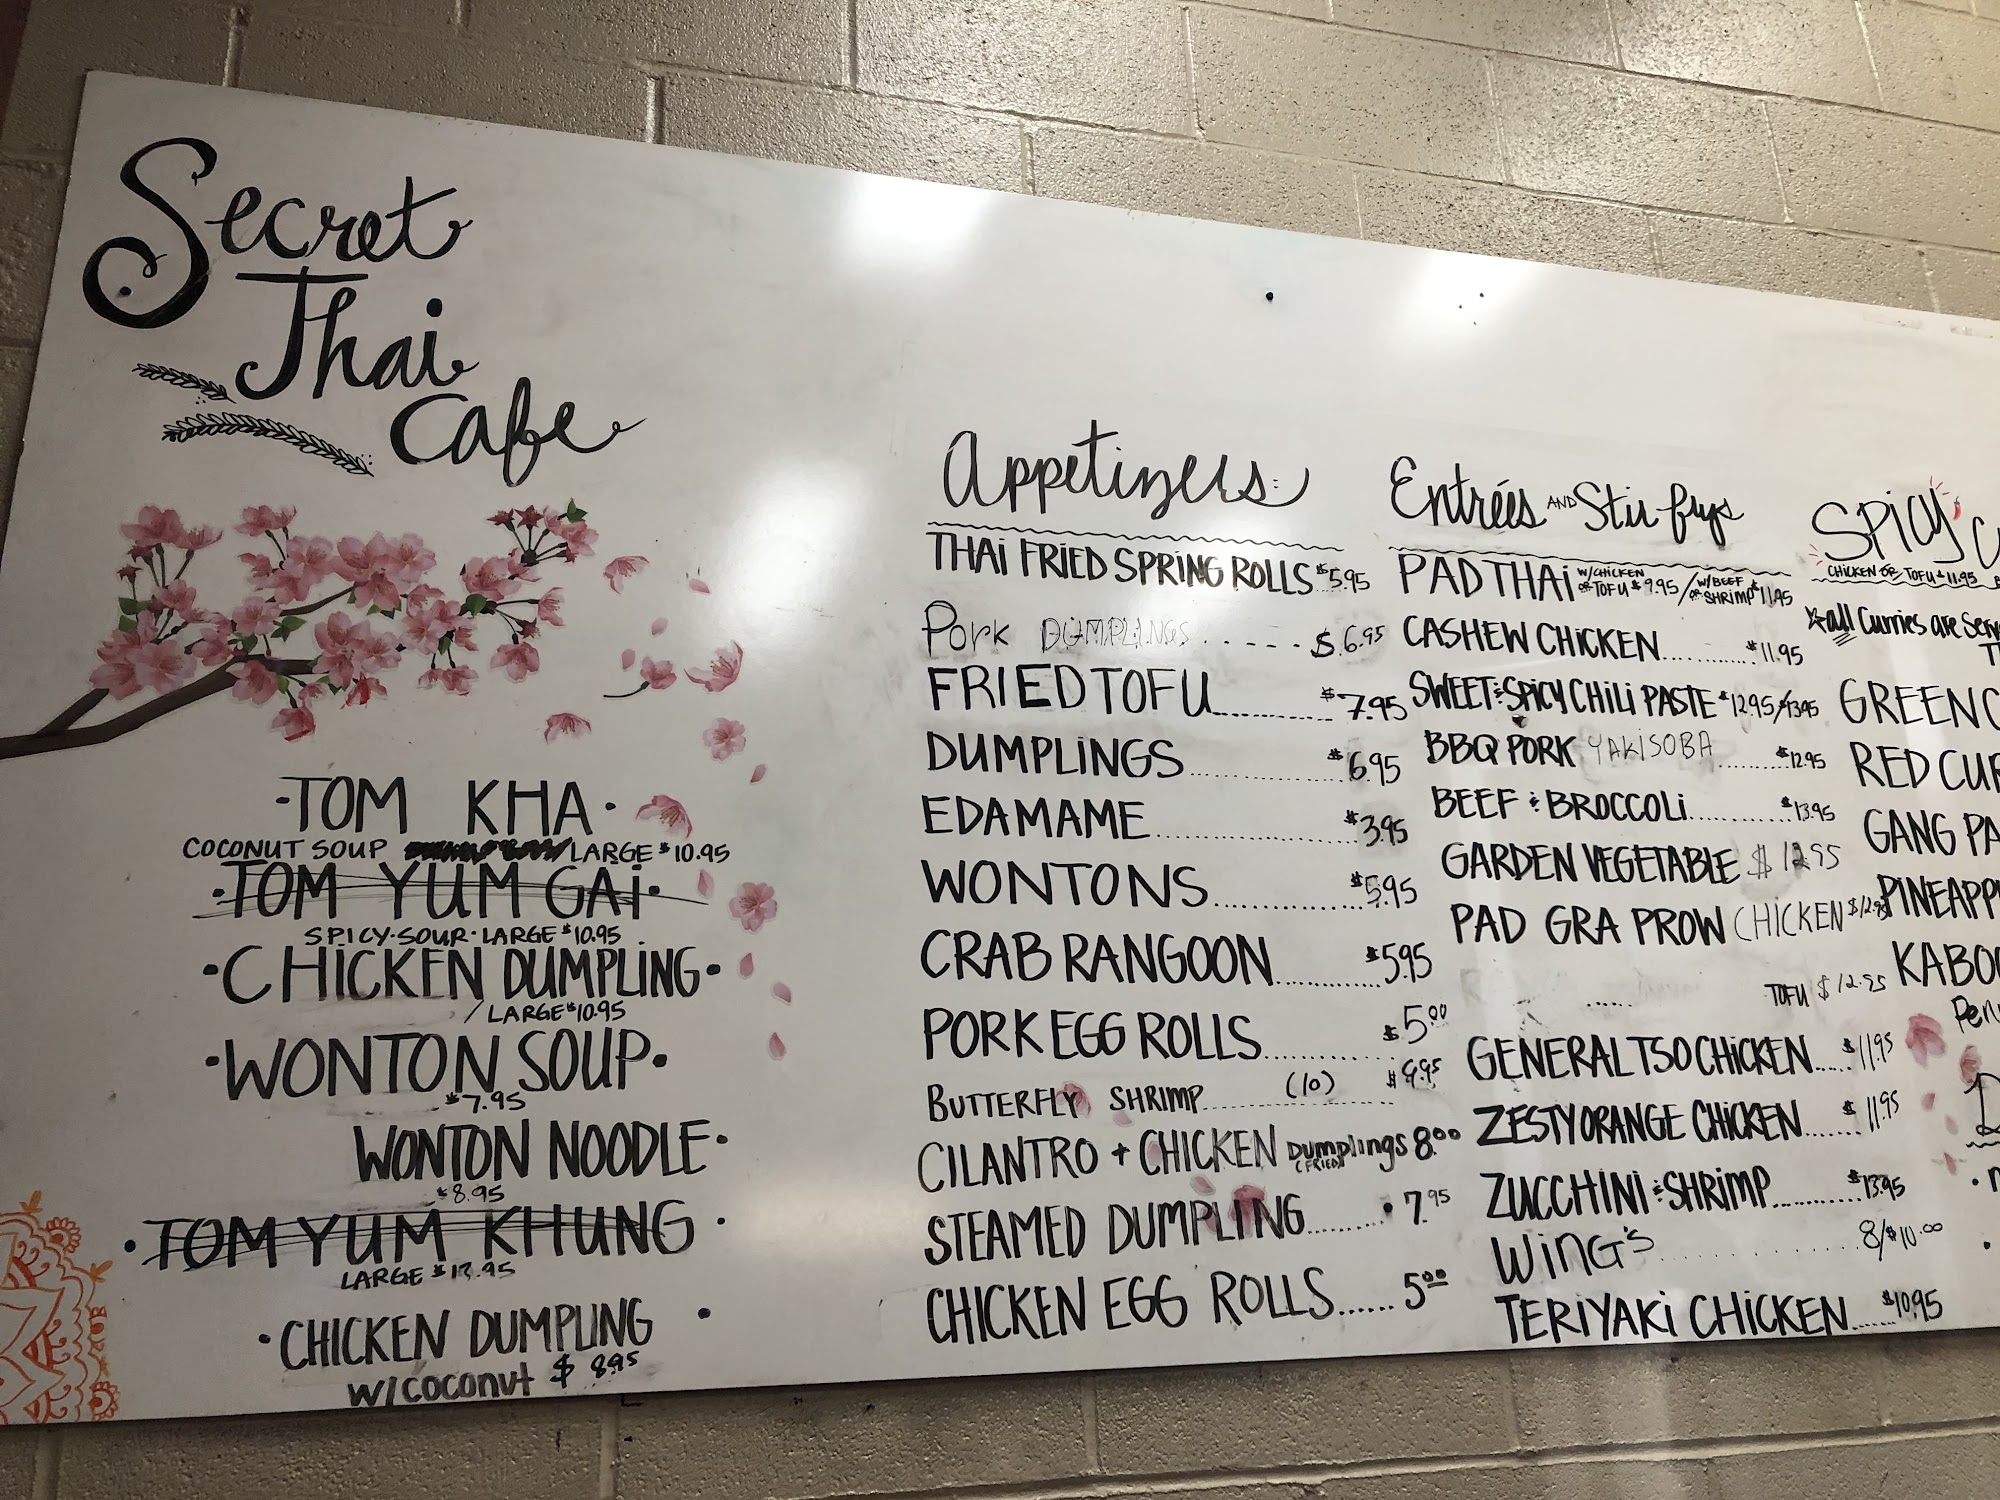 Secret
Thai
Cafe
·TOM KHA·
COCONUT SOUP LARGE $10.95
·TOM YUM GAi·
SPICY·SOUR·LARGE $10.95
·CHiCKEN DUMPLiNG·
/LARGE $10.95
·WONTON SOUP·
$7.95
WONTON NOODLE·
$8.95
·TOM YUM KHUNG·
LARGE $13.95
·CHICKEN DUMPLING ·
w/coconut $ 8.95
Appetizers:
THAi FRiED SPRiNG ROLLS..$5.95
Pork DUMPLINGS.....$6.95
FRIED TOFU.............$7.95
DUMPLiNGS..............$6.95
EDAMAME................$3.95
WONTONS................$5.95
CRAB RANGOON...........$5.95
PORK EGG ROLLS.........$5.00
BUTTERFLY SHRIMP.....(10).....$9.95
CILANTRO + CHICKEN Dumplings 8.00
(FRIED)
STEAMED DUMPLING.......• 7.95
CHICKEN EGG ROLLS......5.00
Entrées AND Stir frys
PAD THAi W/CHiCKEN OR TOFU $9.95/W/BEEF OR SHRiMP $11.95
CASHEW CHiCKEN.............$11.95
SWEET & SPiCY CHiLi PASTE $12.95/$13.95
BBQ PORK YAKiSOBA.........$12.95
BEEF & BROCCOLi............$13.95
GARDEN VEGETABLE $12.95
PAD GRA PROW CHICKEN $12.95
TOFU $12.95
GENERAL TSO CHiCKEN.....$11.95
ZESTY ORANGE CHiCKEN.......$11.95
ZUCCHiNi & SHRiMP...........$13.95
WiNG'S..............8/$10.00
TERiYAKi CHiCKEN.....$10.95
SPICY
CHICKEN OR TOFU $11.95
☆all Curries are
GREEN
RED
GANG
KABO